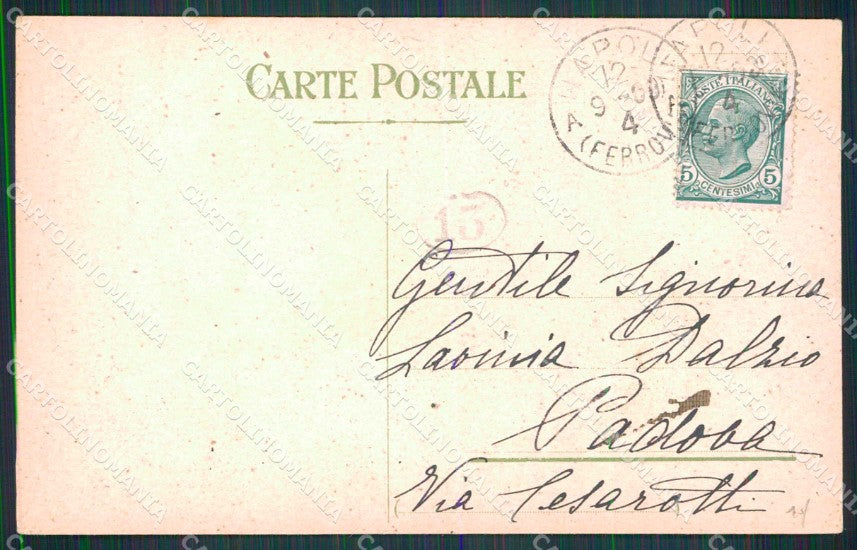 CARTE POSTALE
NAPOLI
12
9 4 09
A (FERROV
NAPOLI
12
4
POSTE ITALIANE
5 5
CENTESIMI
13
Gentile Signorina
Lavinia Dalzio
Padova
Via Cesarotti
CARTOLINOMANIA